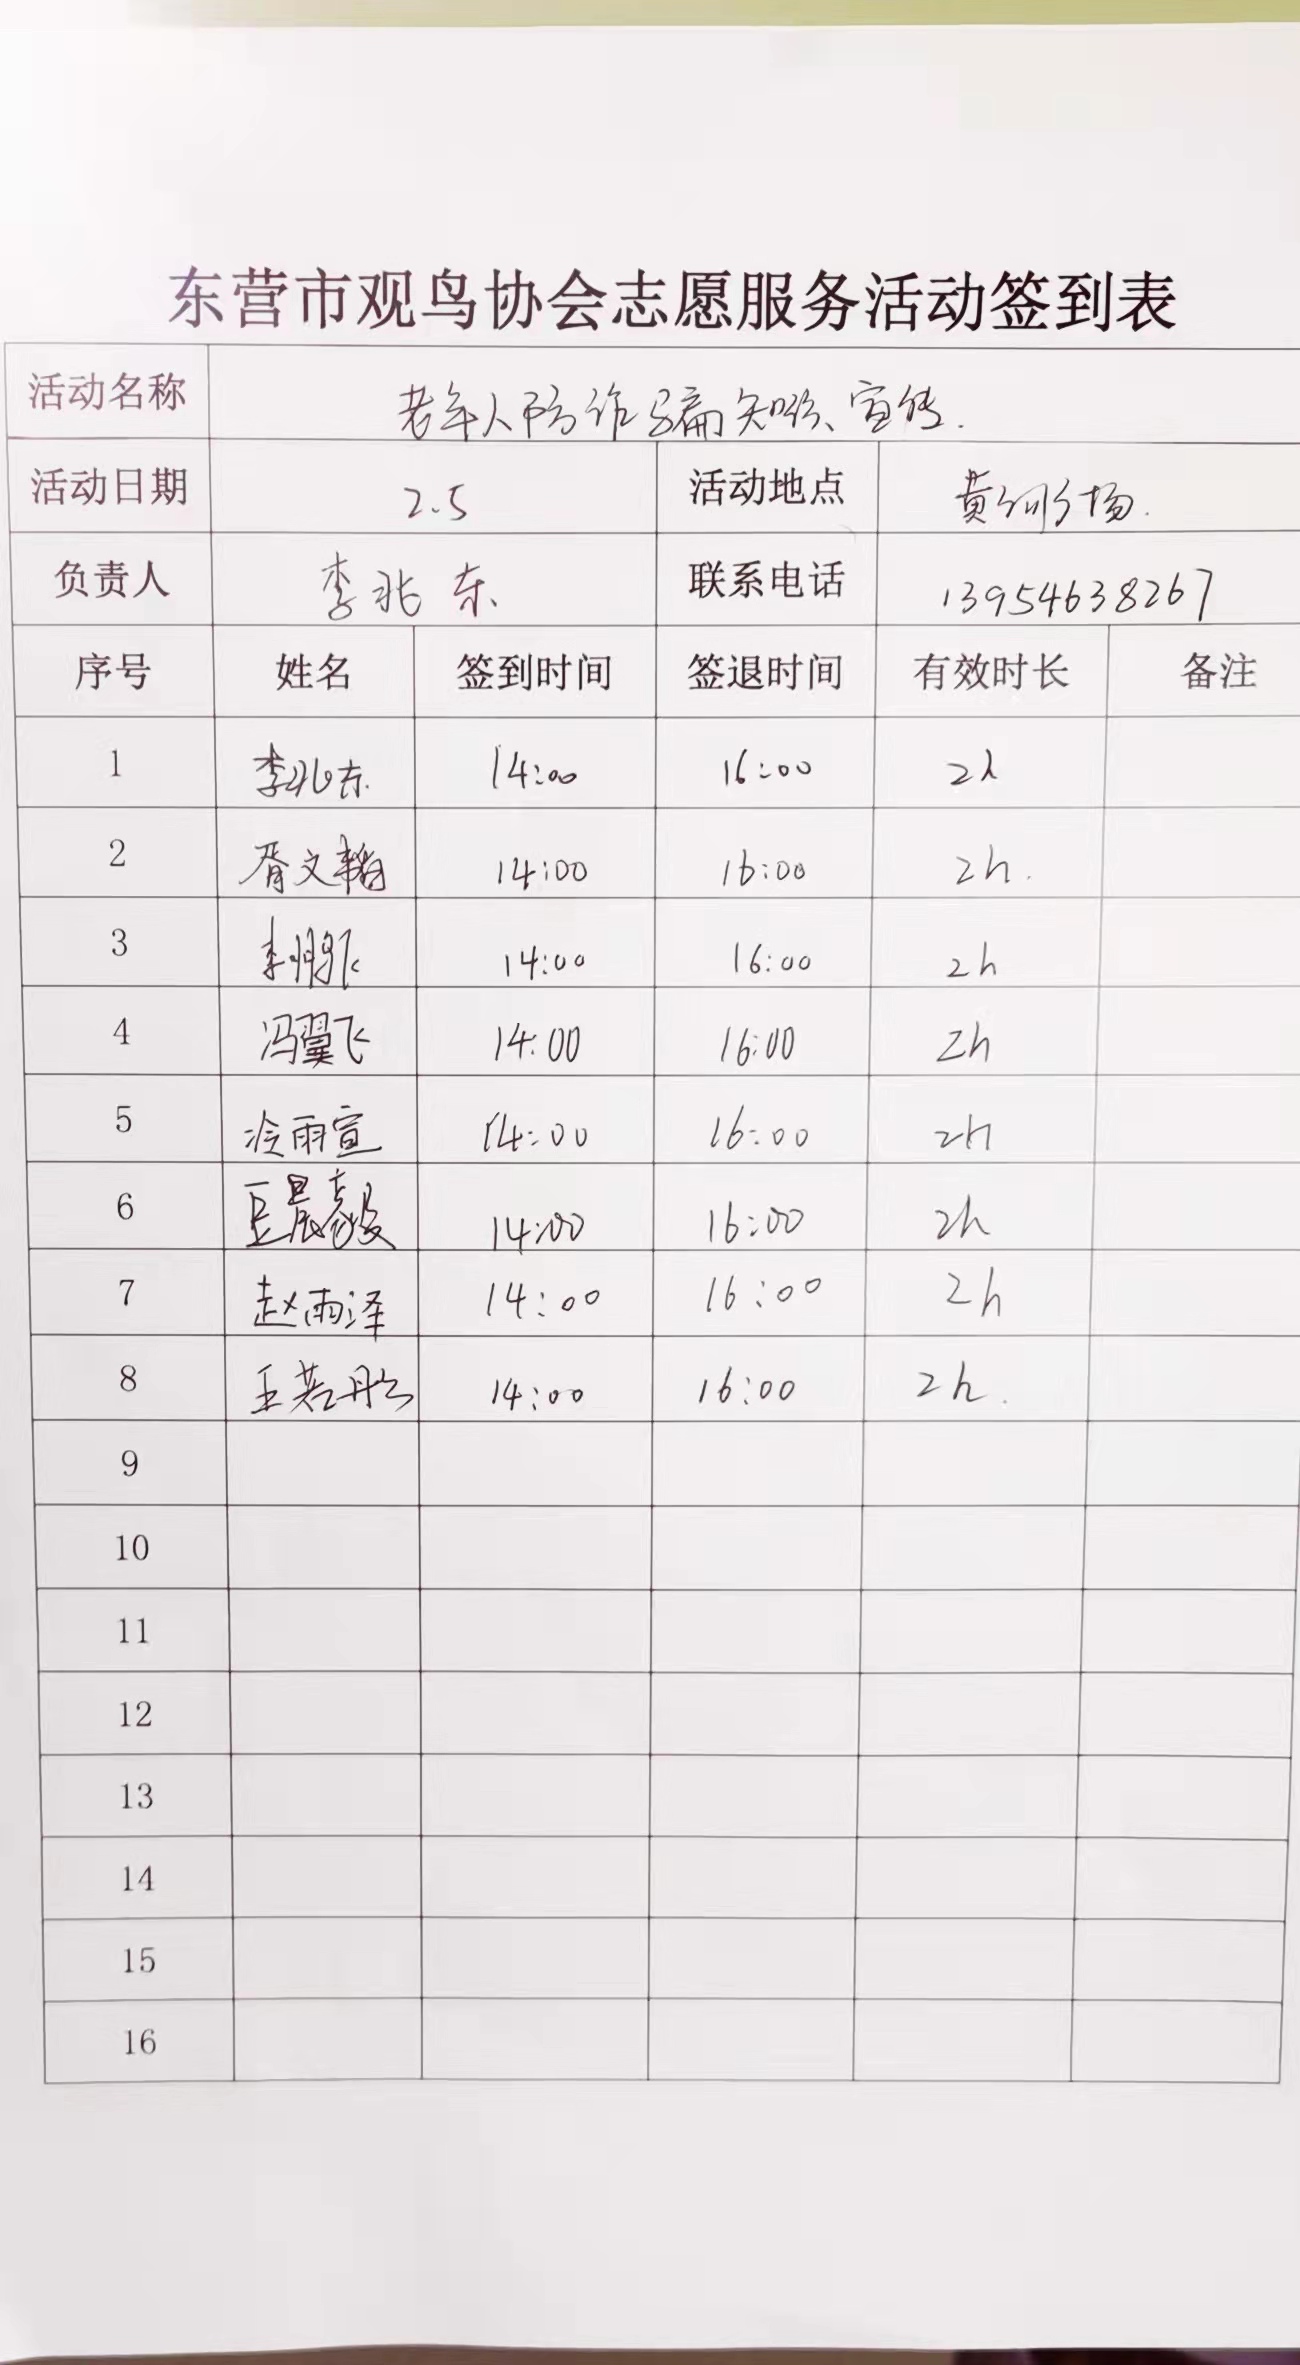 东营市观鸟协会志愿服务活动签到表
活动名称 老年人防诈骗知识宣传.
活动日期 2.5 活动地点 黄河广场.
负责人 李兆东 联系电话 13954638267
序号 姓名 签到时间 签退时间 有效时长 备注
1 李兆东 14:00 16:00 2h
2 胥文韬 14:00 16:00 2h.
3 李鹏飞 14:00 16:00 2h
4 冯翼飞 14:00 16:00 2h
5 冷雨宣 14:00 16:00 2h
6 14:00 16:00 2h
7 赵雨泽 14:00 16:00 2h
8 王若彤 14:00 16:00 2h.
9
10
11
12
13
14
15
16